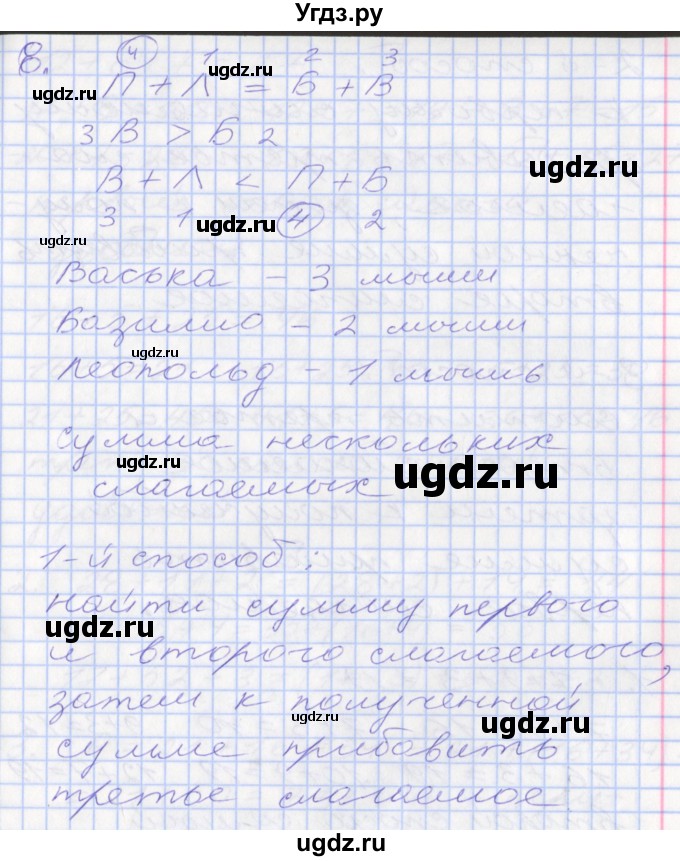 Угдз.ру
8. 4 1 2 3
П + Л = Б + В
3 В > Б 2
В + Л < П + Б
3 1 4 2
Васька – 3 мыши
Базилио – 2 мыши
Леопольд – 1 мышь
сумма нескольких
слагаемых
1-й способ:
найти сумму первого
и второго слагаемого,
затем к полученной
сумме прибавить
третье слагаемое
ugdz.ru
ugdz.ru
ugdz.ru
ugdz.ru
ugdz.ru
ugdz.ru
ugdz.ru
ugdz.ru
ugdz.ru
ugdz.ru
ugdz.ru
ugdz.ru
ugdz.ru
ugdz.ru